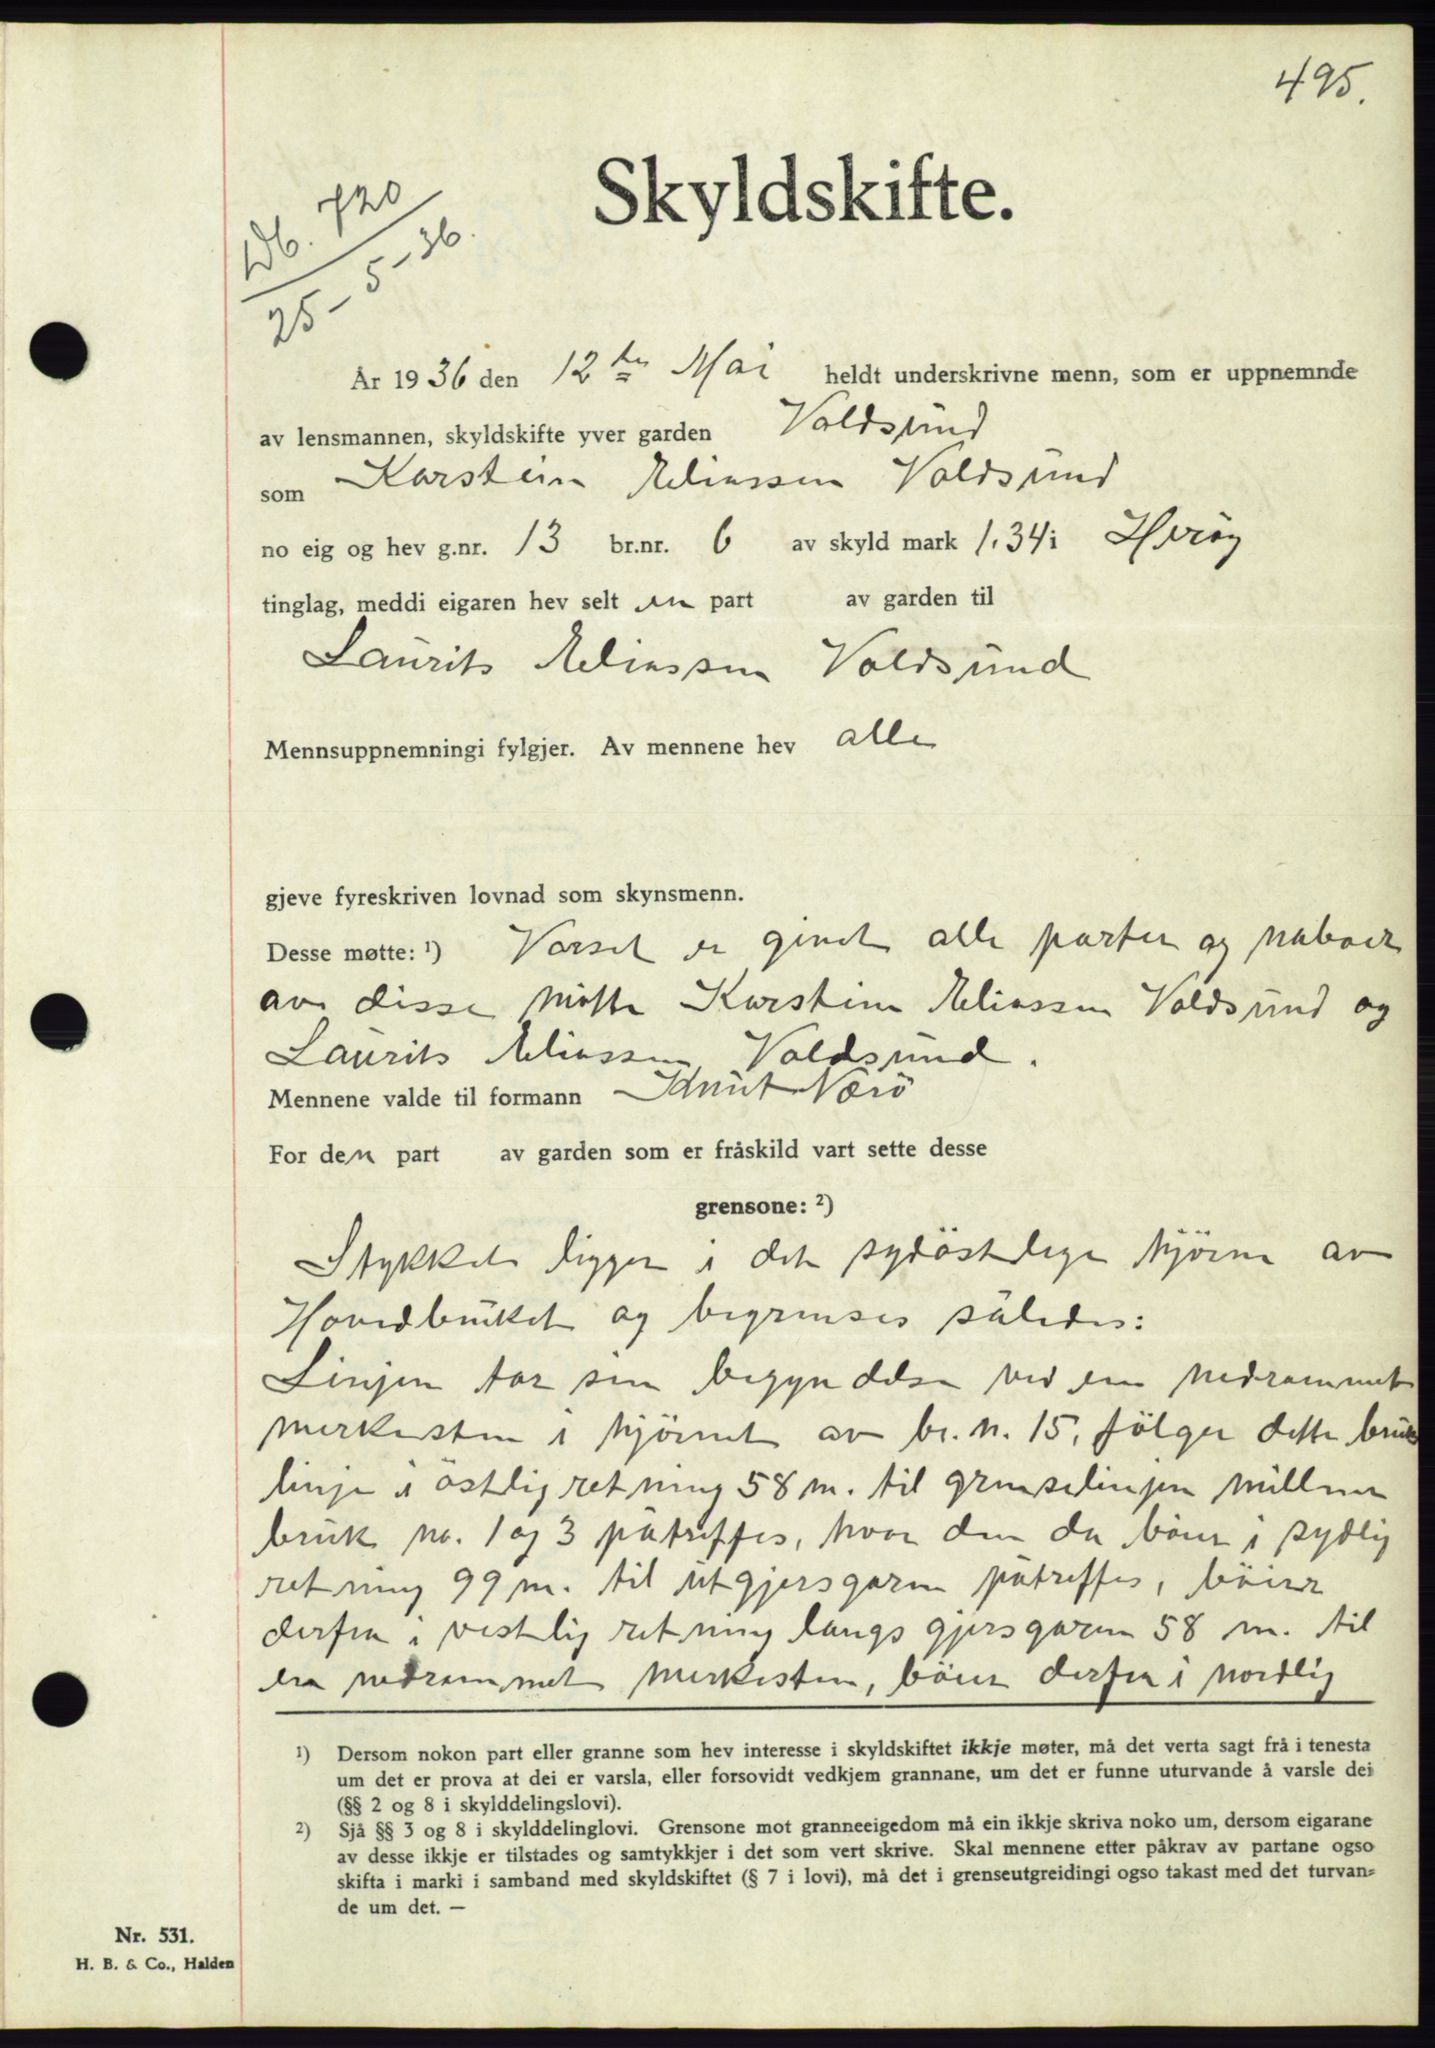 495.
Skyldskifte.
Db. 720
25-5-36.
År 1936 den 12te Mai heldt underskrivne menn, som er uppnemnde
av lensmannen, skyldskifte yver garden Voldsund
som Karstein Eliassen Voldsund
no eig og hev g.nr. 13 br.nr. 6 av skyld mark 1.34 i Herøy
tinglag, meddi eigaren hev selt en part av garden til
Laurits Eliassen Voldsund
Mennsuppnemningi fylgjer. Av mennene hev alle
gjeve fyreskriven lovnad som skynsmenn.
Desse møtte: ¹) Varsel er givet alle parter og naboer
av disse møtte Karstein Eliassen Voldsund og
Laurits Eliassen Voldsund.
Mennene valde til formann Knut Nærö
For den part av garden som er fråskild vart sette desse
grensone: ²)
Stykket ligger i det sydöstlige hjörne av
Hovedbruket og begrenses således:
Linjen tar sin begyndelse ved en nedrammet
merkesten i hjörnet av br. n. 15, fölger dette bruks
linje i östlig retning 58 m. til grenselinjen mellem
bruk no. 1 og 3 påtreffes, hvor den da böier i sydlig
retning 99 m. til utgjersgaren påtreffes, böier
derfra i vestlig retning langs gjersgaren 58 m. til
en nedrammet merkesten, böier derfra i nordlig
¹) Dersom nokon part eller granne som hev interesse i skyldskiftet ikkje møter, må det verta sagt frå i tenesta
um det er prova at dei er varsla, eller forsovidt vedkjem grannane, um det er funne uturvande å varsle dei
(§§ 2 og 8 i skylddelingslovi).
²) Sjå §§ 3 og 8 i skylddelinglovi. Grensone mot granneeigedom må ein ikkje skriva noko um, dersom eigarane
av desse ikkje er tilstades og samtykkjer i det som vert skrive. Skal mennene etter påkrav av partane ogso
skifta i marki i samband med skyldskiftet (§ 7 i lovi), må det i grenseutgreidingi ogso takast med det turvan=
de um det. —
Nr. 531.
H. B. & Co., Halden